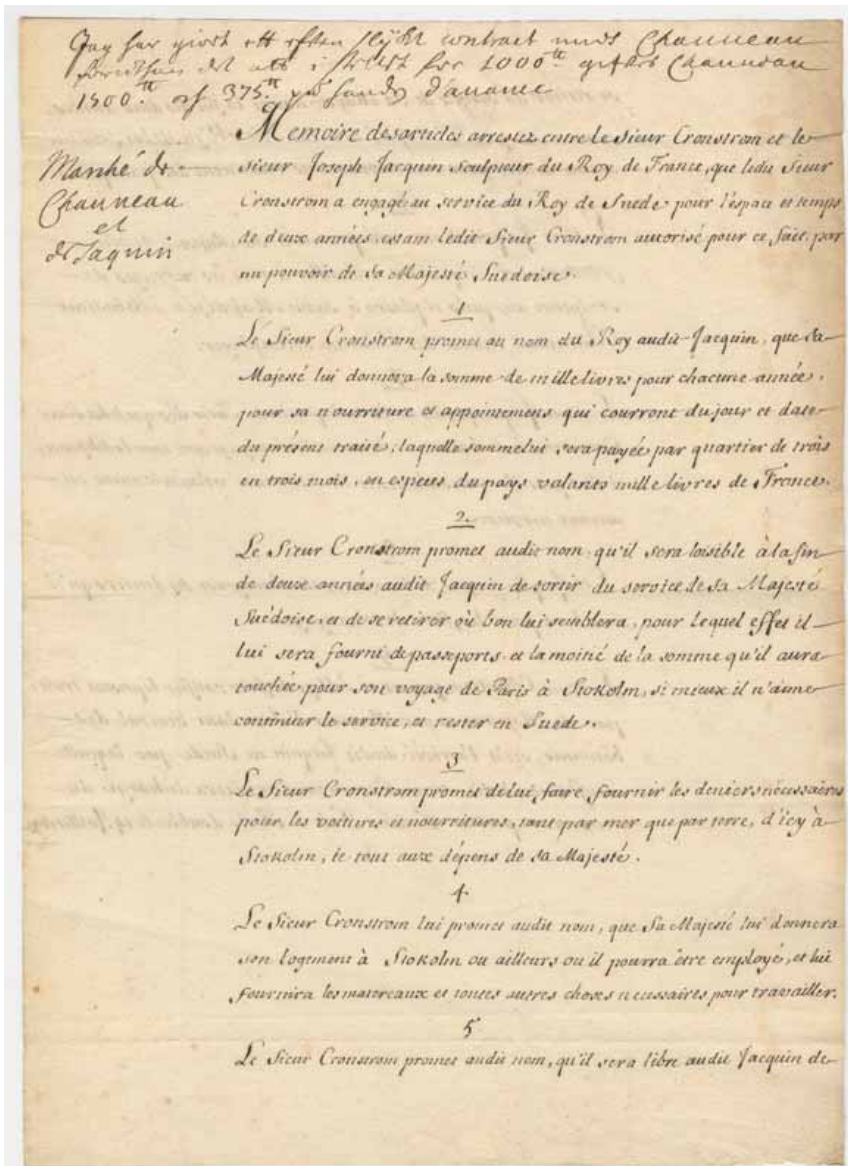 Jag har giort ett efften slijkt contract meds Chauneau
föruthan det att i stelst for 1000.tt gifves Chauneau
1500.tt och 375.tt på hands d'avance
Marché de
Chauneau
et
de Jaquin
Memoire des articles arrestez entre le Sieur Cronstrom et le
sieur Joseph Jacquin Sculpteur du Roy de France, que ledit Sieur
Cronstrom a engagé au service du Roy de Suede pour l'espace et temps
de deux années, estant ledit Sieur Cronstrom autorisé pour ce fait, par
un pouvoir de sa Majesté Suedoise.
1
Le Sieur Cronstrom promet au nom du Roy audit Jacquin, que sa
Majesté lui donnera la somme de mille livres pour chacune année,
pour sa nourriture et appointemens qui courront du jour et date
du présent traité; laquelle somme lui sera payée par quartier de trois
en trois mois, en especes du pays valants mille livres de France.
2.
Le Sieur Cronstrom promet audit nom, qu'il sera loisible à la fin
de deux années audit Jacquin de sortir du service de sa Majesté
Suédoise, et de se retirer où bon lui semblera, pour lequel effet il
lui sera fourni de passeports et la moitié de la somme qu'il aura
touchée pour son voyage de Paris à Stokolm, si mieux il n'aime
continuer le service, et rester en Suede.
3
Le Sieur Cronstrom promet de lui faire fournir les deniers nécessaires
pour les voitures et nourritures, tant par mer que par terre, d'icy à
Stokolm, le tout aux dépens de sa Majesté.
4
Le Sieur Cronstrom lui promet audit nom, que Sa Majesté lui donnera
son logement à Stokolm ou ailleurs ou il pourra être employé, et lui
fournira les matereaux et toutes autres choses necessaires pour travailler.
5
Le Sieur Cronstrom promet audit nom, qu'il sera libre audit Jacquin de